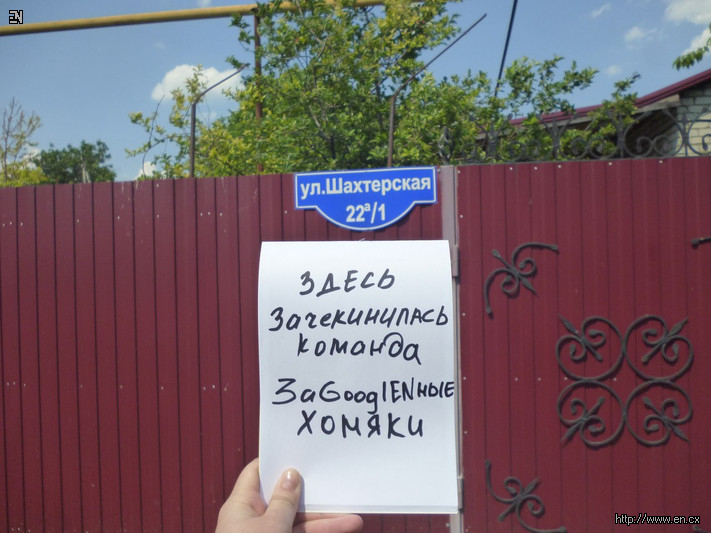 EN
ул.Шахтерская
22а/1
ЗДЕСЬ
Зачекинилась
команда
ЗаGooglENные
ХОМЯКИ
http://www.en.cx